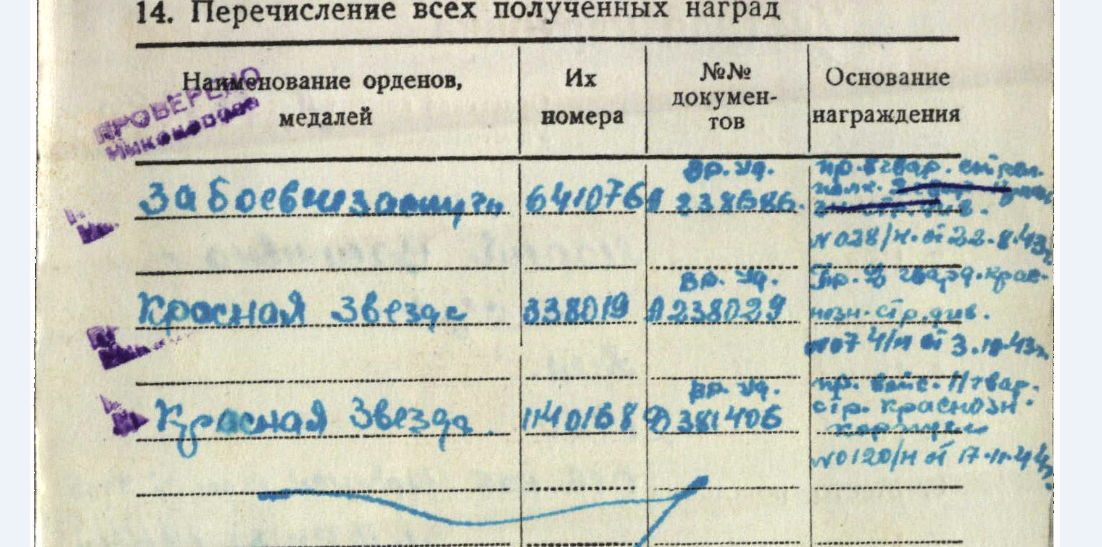 14. Перечисление всех полученных наград
Наименование орденов,
медалей
Их
номера
№№
докумен-
тов
Основание
награждения
ПРОВЕРЕНО
За боевые заслуги
641076
Вр. уд.
А 238686.
стр. див.
№028/н. от 22.8.43г
Красная Звезда
338019
Вр. уд.
А238029
Пр. гвард. крас-
нозн. стр. див.
№074/н от 3.10.43г.
Красная Звезда.
1140168
Вр. уд.
Д381406
пр. войс. 11 гвар.
стр. краснозн.
№0120/н от 17.11.44г.